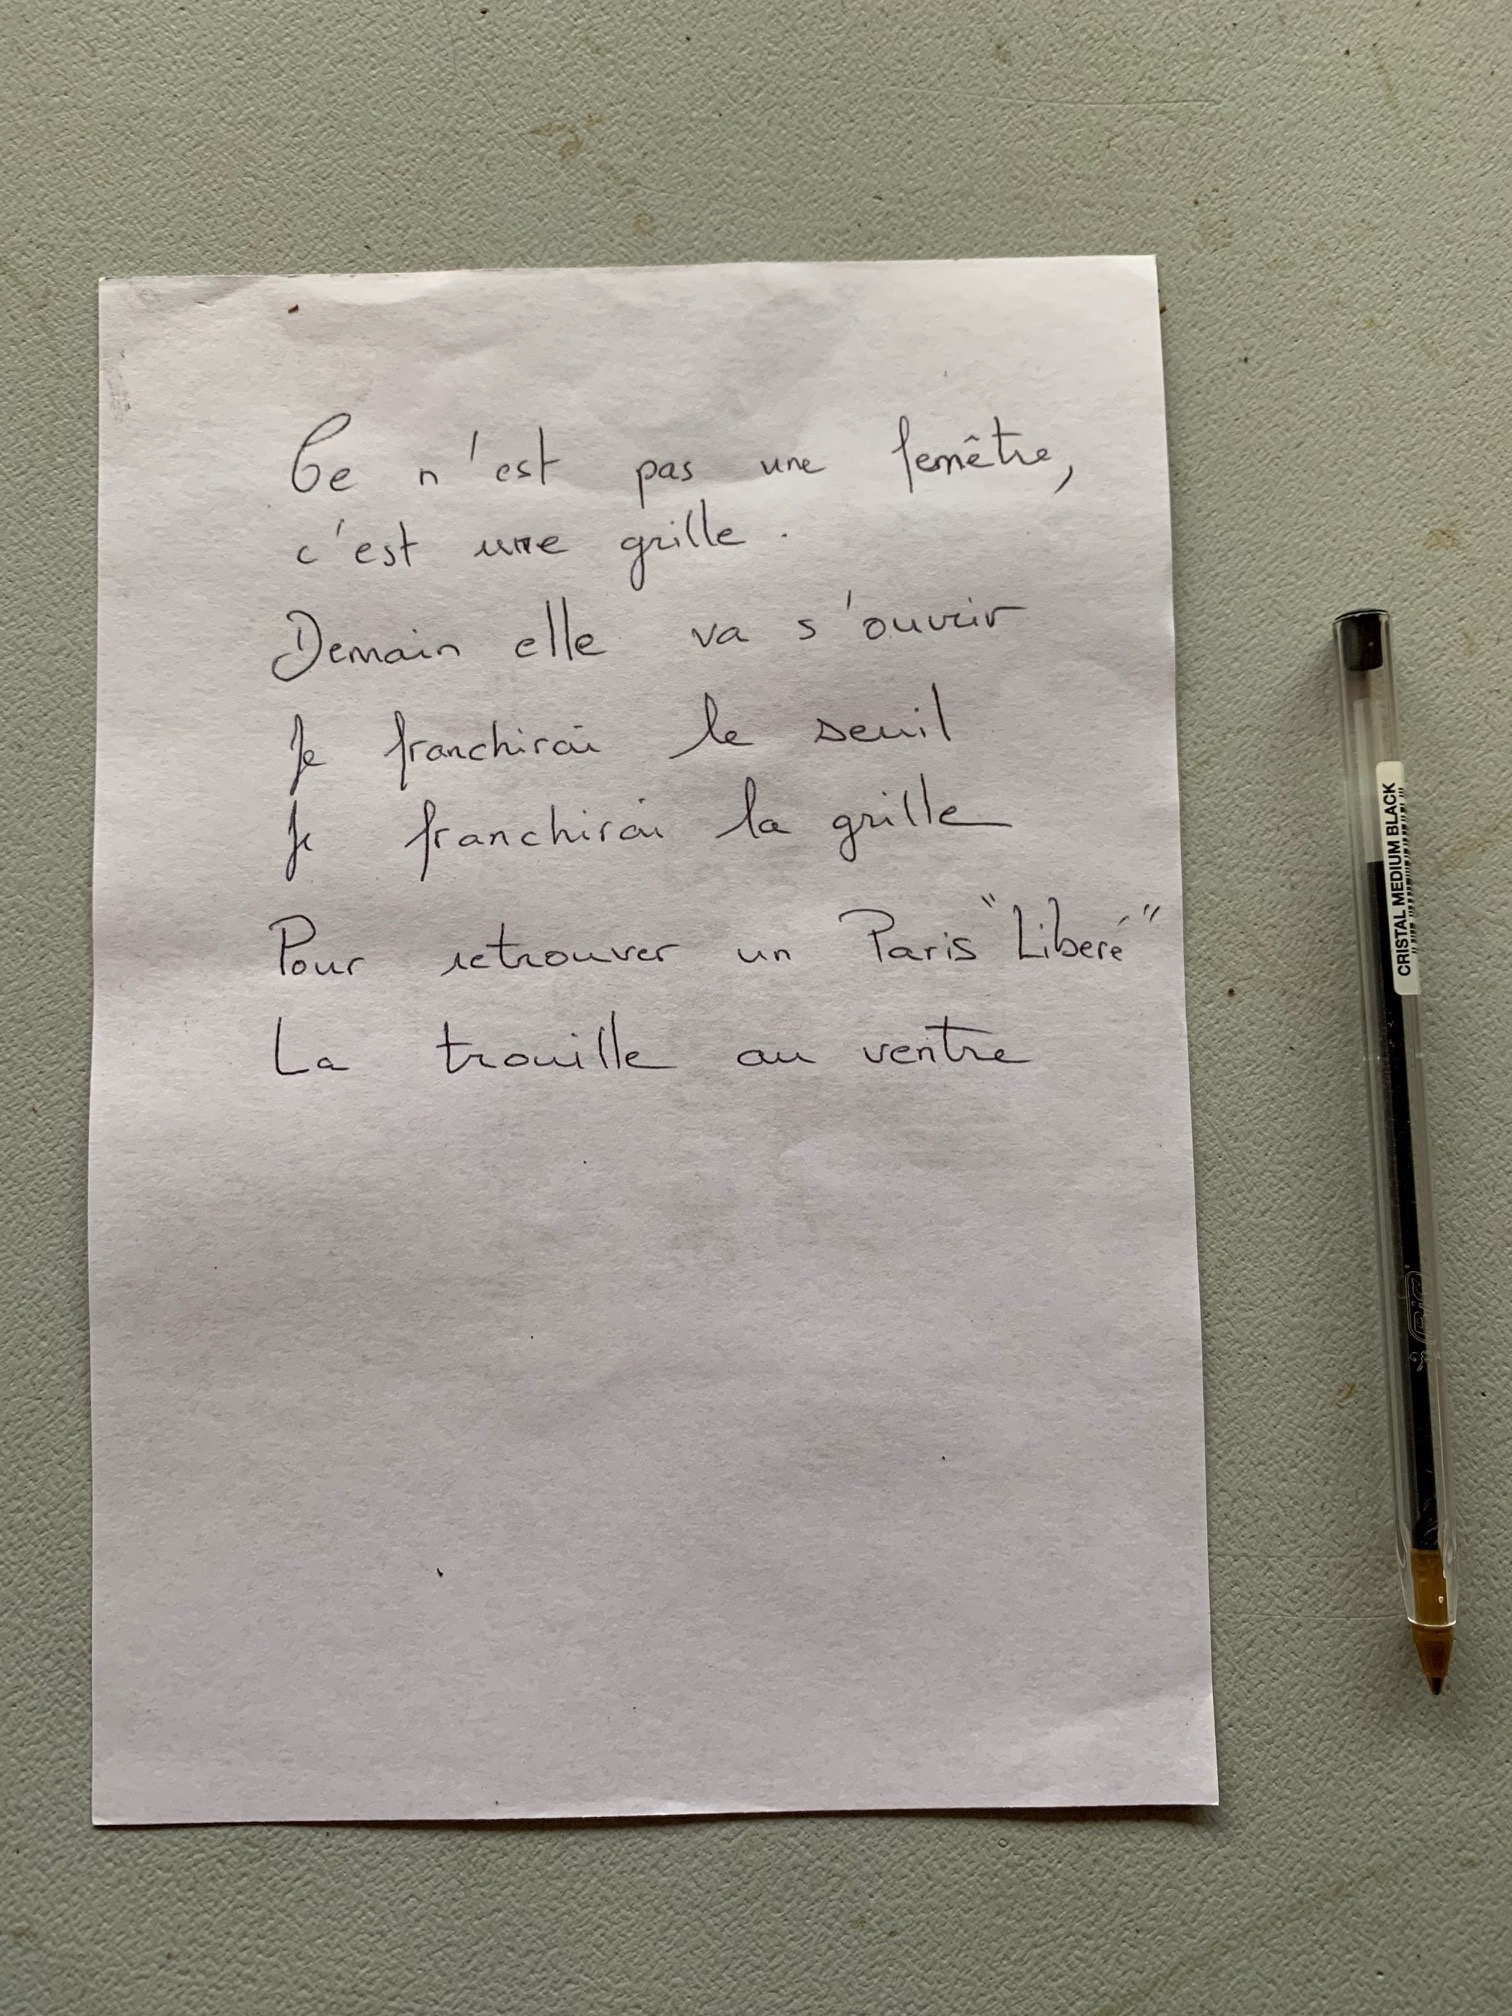 Ce n'est pas une fenêtre,
c'est une grille.
Demain elle va s'ouvrir
Je franchirai le seuil
Je franchirai la grille
Pour retrouver un Paris "Liberé"
La trouille au ventre
CRISTAL MEDIUM BLACK
BIC